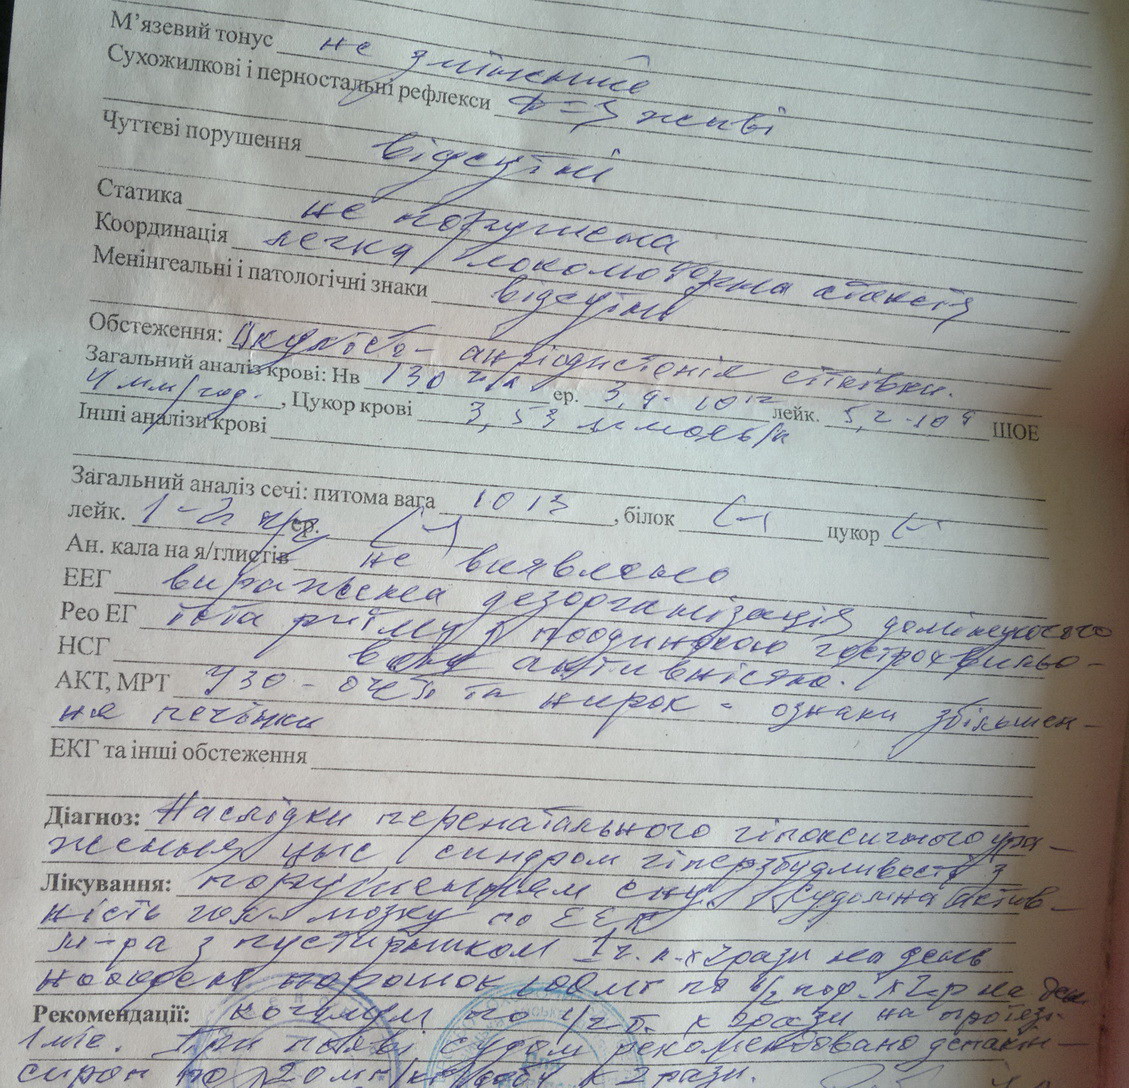 М’язевий тонус не змінений
Сухожилкові і перностальні рефлекси D=S живі
Чуттєві порушення відсутні
Статика не порушена
Координація легка локомоторна атаксія
Менінгеальні і патологічні знаки відсутні
Обстеження: Окуліст - ангіодистонія сітківки.
Загальний аналіз крові: Нв 130 г/л ер. 3,9·10¹² лейк. 5,2·10⁹ ШОЕ
4 мм/год., Цукор крові 3,53 ммоль/л
Інші аналізи крові
Загальний аналіз сечі: питома вага 1013, білок (-) цукор (-)
лейк. 1-2 ер. (-)
Ан. кала на я/глистів не виявлено
ЕЕГ виражена дезорганізація домінуючого
Рео ЕГ ритму з поодинокою гострохвильо-
НСГ вою активністю.
АКТ, МРТ УЗД - ОЧП та нирок - ознаки збільшен-
ня печінки
ЕКГ та інші обстеження
Діагноз: Наслідки перенатального гіпоксичного ура-
ження ЦНС синдром гіперзбудливості з
Лікування: порушенням сну. Судомна актив-
ність гол. мозку по ЕЕГ
м-ра з пустирником 1 ч.л. х 2 рази на день
порошок по 1/2 пор. х 2 р на день
Рекомендації: когнум по 1/2 т. х рази на протязі
1 міс. При появі судом рекомендовано депакін-
сироп по 20 мг/кг добу х 2 рази.